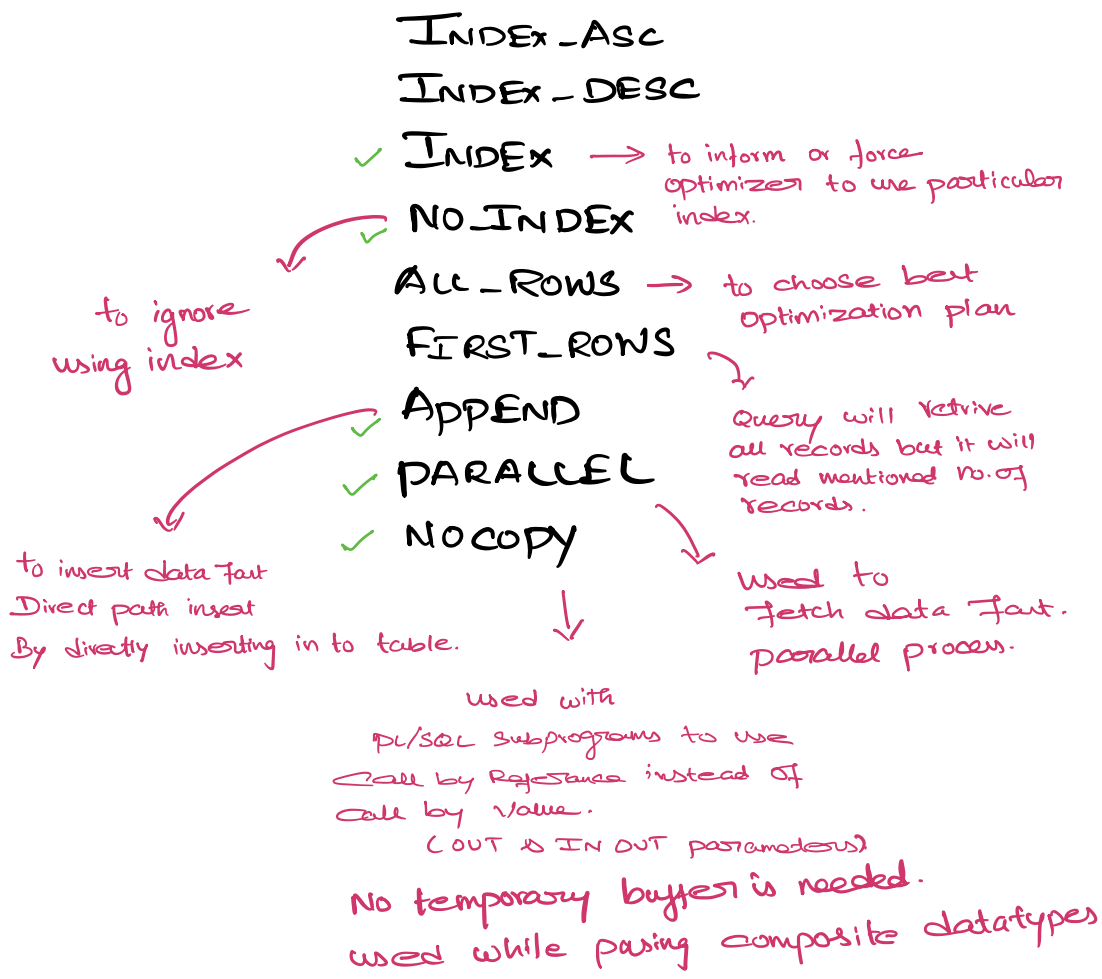 INDEX_ASC
INDEX_DESC
INDEX
to inform or force
optimizer to use particular
index.
NO_INDEX
to ignore
using index
ALL_ROWS
to choose best
optimization plan
FIRST_ROWS
Query will retrive
all records but it will
read mentioned no.of
records.
APPEND
to insert data fast
Direct path insert
By directly inserting in to table.
PARALLEL
used to
fetch data fast.
parallel process.
NOCOPY
used with
PL/SQL subprograms to use
Call by Referance instead of
Call by Value.
(OUT & IN OUT parameders)
No temporary buffer is needed.
used while pasing composite datatypes